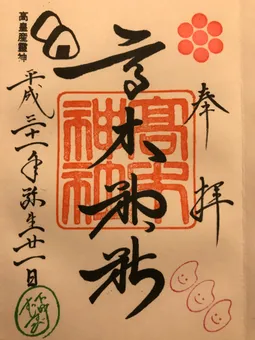 奉拝
髙木神社
高皇産霊神
平成三十一年弥生廿一日
髙木神社